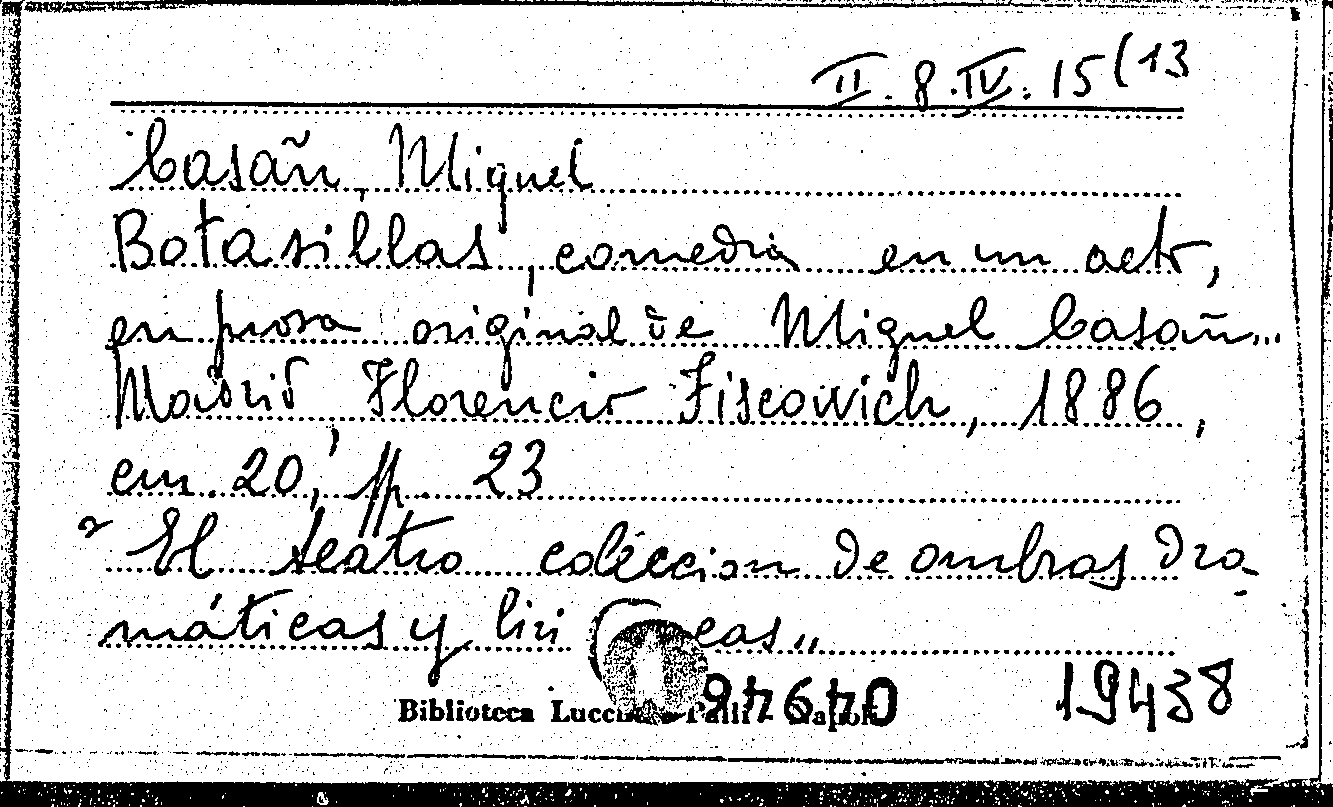 II. 8. IV. 15(13
Casañ, Miguel
Botasillas, comedia en un acto,
en prosa original de Miguel Casañ...
Madrid, Florencio Fiscowich, 1886,
cm. 20, pp. 23
"El teatro coleccion de ombras dra-
máticas y liricas"
19438
Biblioteca Lucchesi Palli - Napoli
04946